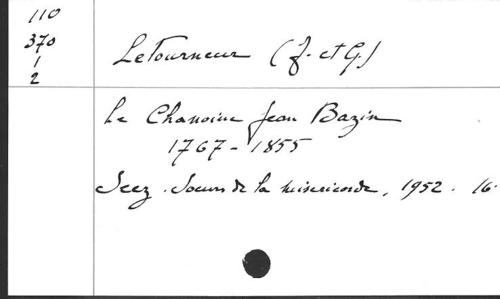 110
370
1
2
Letourneur (J. et G.)
Le Chanoine Jean Bazin
1767-1855
Seez. Soeurs de la misericorde, 1952. 16.